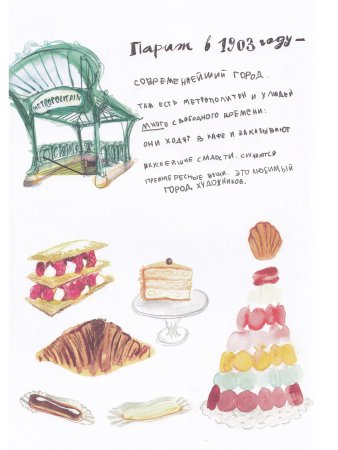 Париж в 1903 году —
METROPOLITAIN
СОВРЕМЕННЕЙШИЙ ГОРОД.
ТАМ ЕСТЬ МЕТРОПОЛИТЕН И У ЛЮДЕЙ
МНОГО СВОБОДНОГО ВРЕМЕНИ:
ОНИ ХОДЯТ В КАФЕ И ЗАКАЗЫВАЮТ
ВКУСНЕЙШИЕ СЛАДОСТИ. СЛУЧАЮТСЯ
ВЕЩИ. ЭТО ЛЮБИМЫЙ
ГОРОД ХУДОЖНИКОВ.